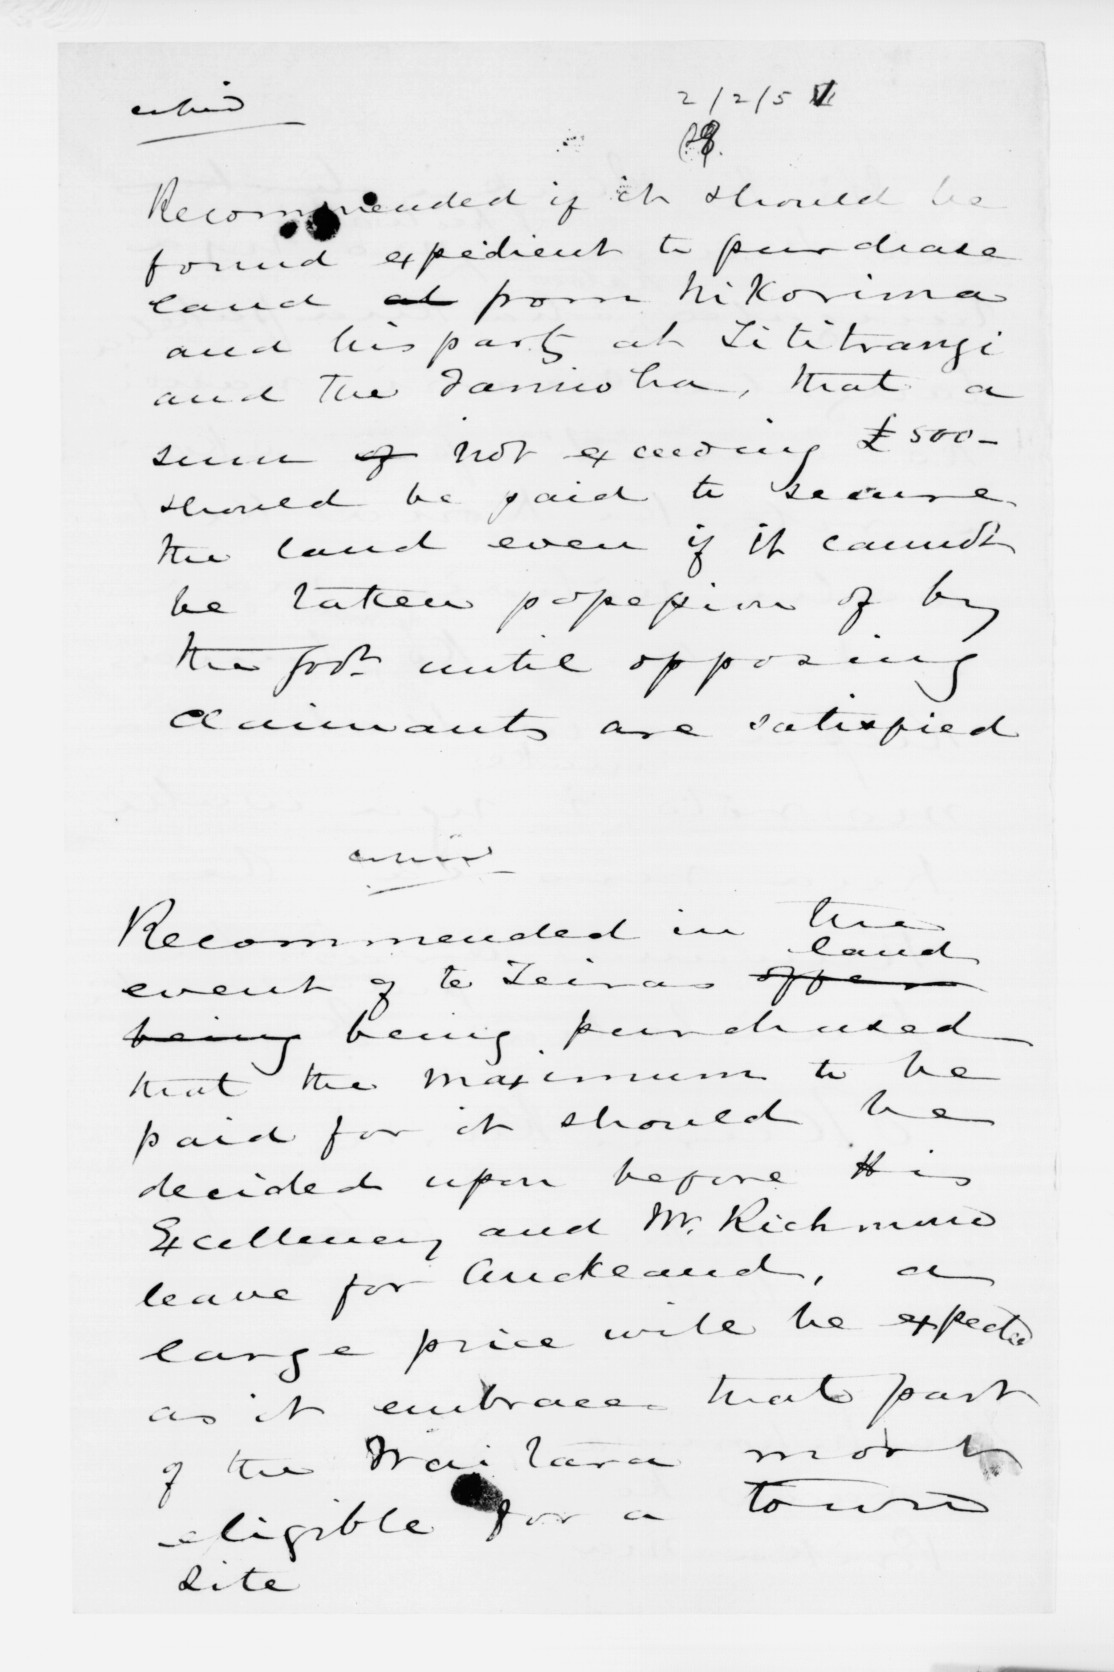 2/2/5
Recommended if it should be
found expedient to purchase
land at from Nikorima
and his party at Tititrangi
and the , that a
sum of not exceeding £500-
should be paid to secure
the land even if it cannot
be taken possession of by
the Govt. until opposing
claimants are satisfied
Recommended in the
land
event of te Teiras offer
being being purchased
that the maximum to be
paid for it should be
decided upon before His
Excellency and Mr. Richmond
leave for Auckland, a
large price will be expected
as it embraces that part
of the Waitara most
eligible for a town
site